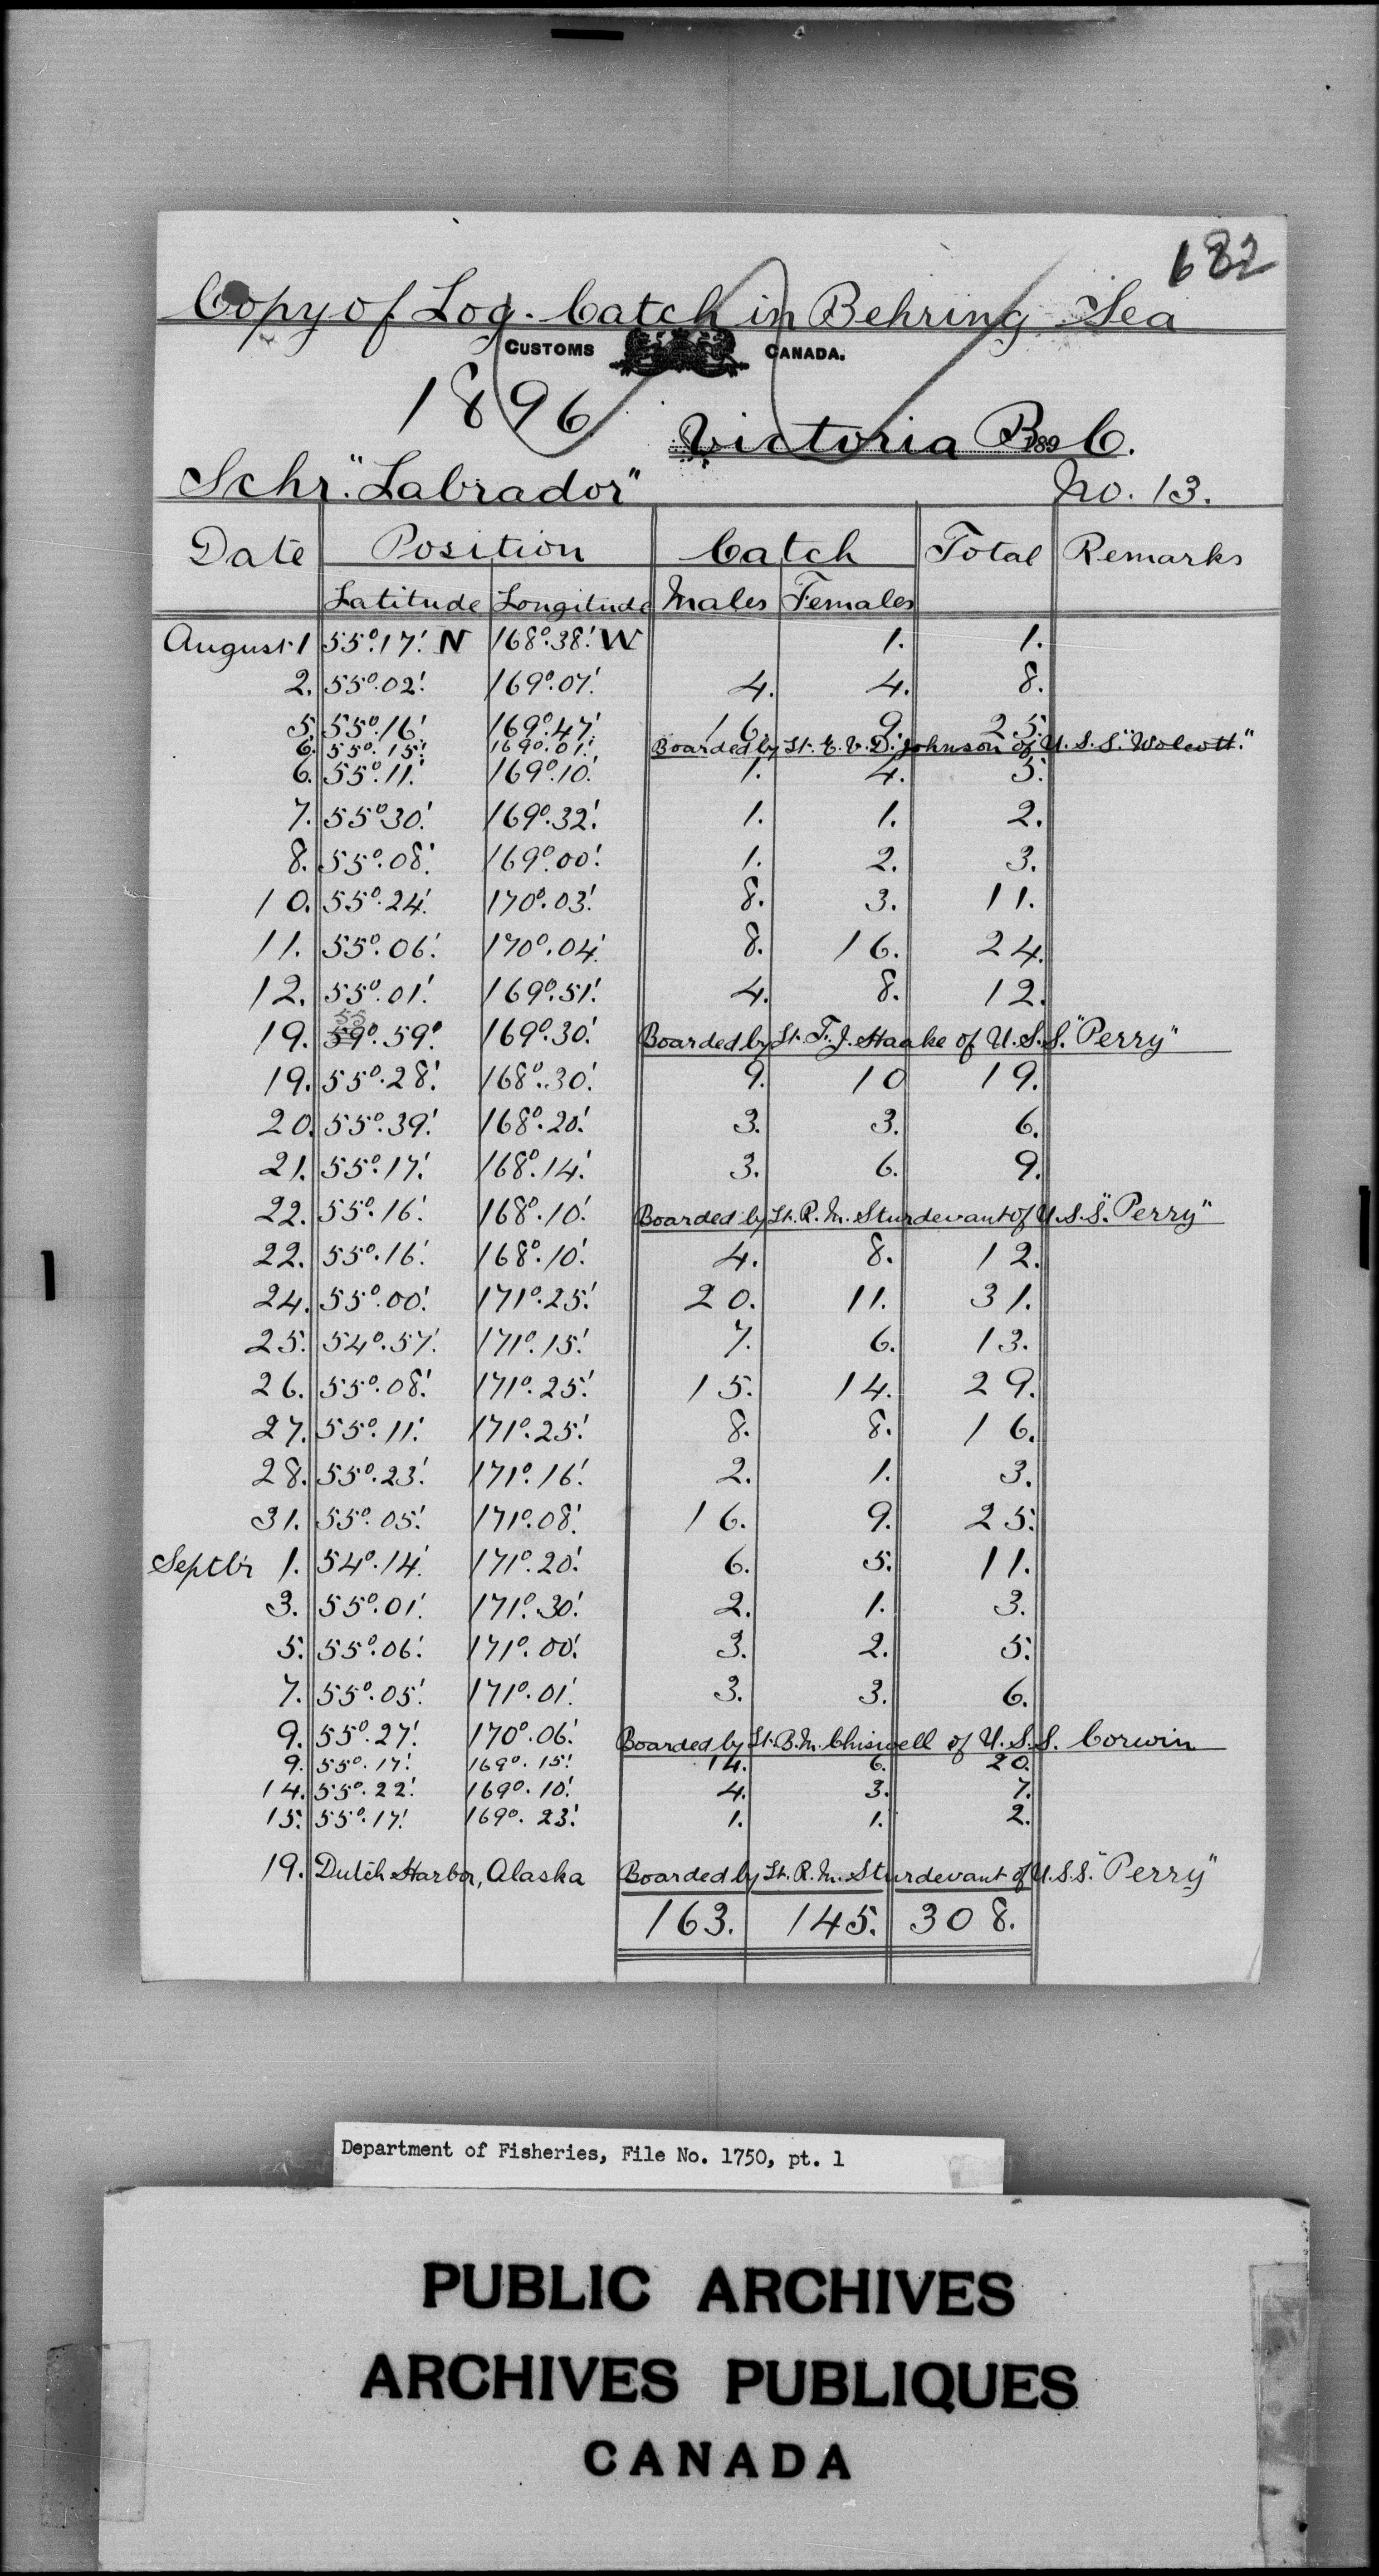 682
Copy of Log. Catch in Behring Sea
CUSTOMS CANADA.
1896
Victoria B. C.
189
Schr. "Labrador" No. 13.
Date Position Catch Total Remarks
Latitude Longitude Males Females
August 1 55°.17.' N 168°.38.' W 1. 1.
2. 55°.02.' 169°.07.' 4. 4. 8.
5. 55°.16.' 169°.47.' 16. 9. 25.
6. 55°.15.' 169°.01.' Boarded by Lt. E. V. D. Johnson of U. S. S. "Wolcott."
6. 55°.11.' 169°.10.' 1. 4. 5.
7. 55°30.' 169°.32.' 1. 1. 2.
8. 55°.08.' 169°.00.' 1. 2. 3.
10. 55°.24.' 170°.03.' 8. 3. 11.
11. 55°.06.' 170°.04.' 8. 16. 24.
12. 55°.01.' 169°.51.' 4. 8. 12.
55
19. 59°.59.° 169°.30.' Boarded by Lt. T. J. Haake of U. S. S. "Perry"
19. 55°.28.' 168°.30.' 9. 10 19.
20. 55°.39.' 168°.20.' 3. 3. 6.
21. 55°.17.' 168°.14.' 3. 6. 9.
22. 55°.16.' 168°.10.' Boarded by Lt. R. M. Sturdevant of U. S. S. "Perry"
22. 55°.16.' 168°.10.' 4. 8. 12.
24. 55°.00.' 171°.25.' 20. 11. 31.
25. 54°.57.' 171°.15.' 7. 6. 13.
26. 55°.08.' 171°.25.' 15. 14. 29.
27. 55°.11.' 171°.25.' 8. 8. 16.
28. 55°.23.' 171°.16.' 2. 1. 3.
31. 55°.05.' 171°.08.' 16. 9. 25.
Septbr 1. 54°.14.' 171°.20.' 6. 5. 11.
3. 55°.01.' 171°.30.' 2. 1. 3.
5. 55°.06.' 171°.00.' 3. 2. 5.
7. 55°.05.' 171°.01.' 3. 3. 6.
9. 55°.27.' 170°.06.' Boarded by Lt. B. M. Chiswell of U. S. S. Corwin
9. 55°.17.' 169°.15.' 14. 6. 20.
14. 55°.22.' 169°.10.' 4. 3. 7.
15. 55°.17.' 169°.23.' 1. 1. 2.
19. Dutch Harbor, Alaska Boarded by Lt. R. M. Sturdevant of U. S. S. "Perry"
163. 145. 308.
Department of Fisheries, File No. 1750, pt. 1
PUBLIC ARCHIVES
ARCHIVES PUBLIQUES
CANADA